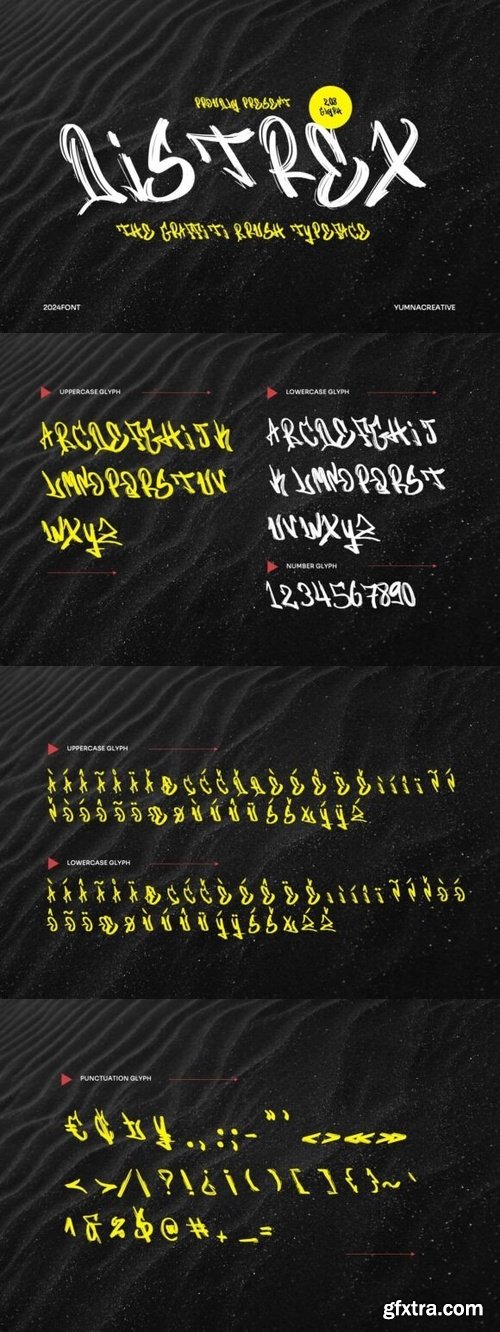 PROUDLY PRESENT
208
GLYPH
DISTREX
THE GRAFFITI BRUSH TYPEFACE
2024FONT
YUMNACREATIVE
UPPERCASE GLYPH
ABCDEFGHIJK
LMNOPQRSTUV
WXYZ
LOWERCASE GLYPH
ABCDEFGHIJ
KLMNOPQRST
UVWXYZ
NUMBER GLYPH
1234567890
UPPERCASE GLYPH
LOWERCASE GLYPH
PUNCTUATION GLYPH
€ ¢ ¤ ¥ . , : ; - " ' ‹ › « »
< > / \ | ? ! ¿ ¡ ( ) [ ] { } ~ `
^ & % $ @ # + _ =
gfxtra.com